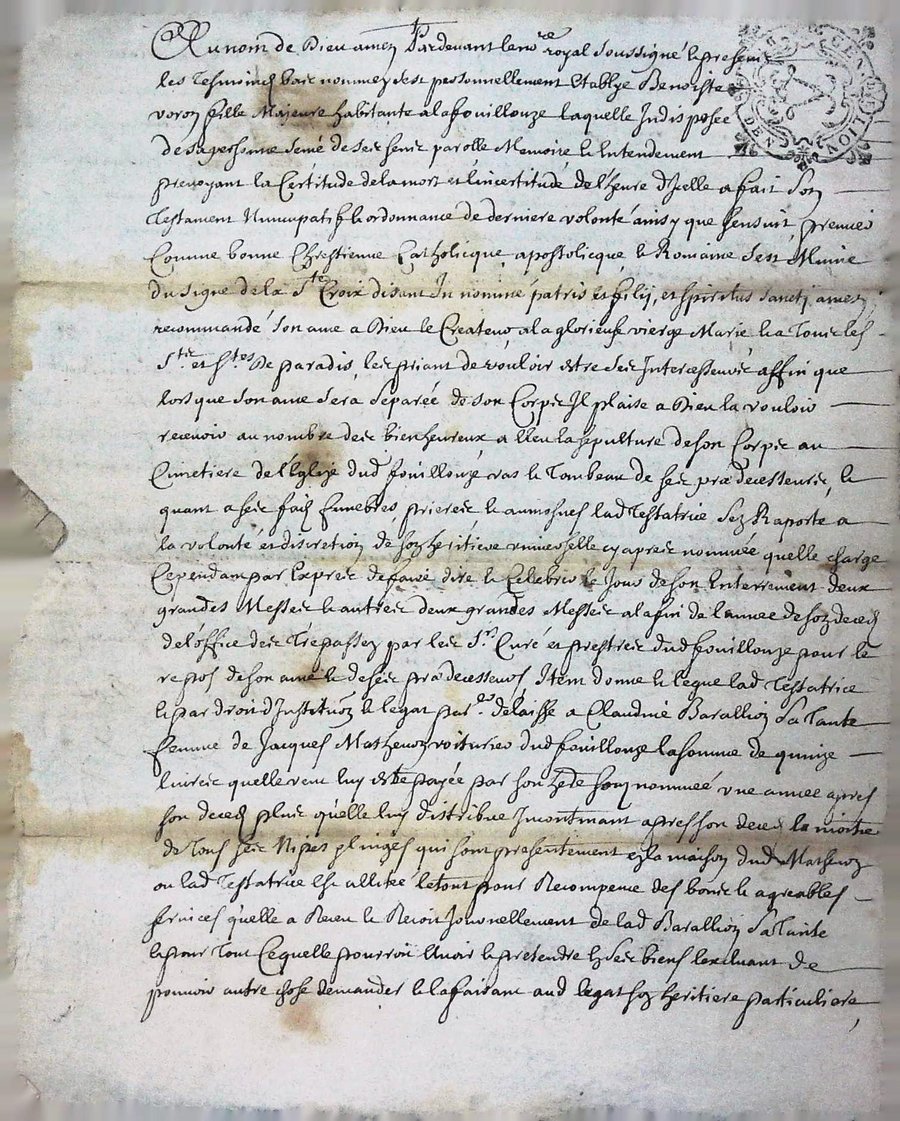 Au nom de Dieu amen Pardevant le no.re royal soussigné le present
les tesmoins bas nommez s'est personnellement Etablye Benoiste
voron fille Majeure habitante a la fouillouze laquelle Indisposée
de sa personne de ses sens parolle Memoire & Entendement
prevoyant la Certitude de la mort et l'incertitude de l'heure d'Icelle a fait Son
Testament Nuncupatif & ordonnance de derniere volonté ainsy que s'ensuit, premier
Comme bonne Chrestienne Catholicque apostolicque & Romaine s'est Munie
du signe de la Ste Croix disant In nomine patris et filij, et spiritus sancti amen
recommandé son ame a Dieu le Createur a la glorieuse vierge Marie & a Tous les
Sts et Stes De paradis, les priant de vouloir estre ses Intercesseurs affin que
lors que son ame sera separée de son Corps Il plaise a Dieu la vouloir
recevoir au nombre des bienheureux a lleu la sepulture de son Corps au
Cimetiere de l'Eglise dud fouillouze le Tombeau de ses prædecesseurs, &
quant a ses fraix funebres, prieres & aumosnes lad Testatrice s'en Raporte a
la volonté et discretion de son heritiere universelle cy apres nommée quelle charge
Cependant par Expres de faire dire & Celebrer le Jour de son Enterrement deux
grandes Messes & autres deux grandes Messes a la fin de l'année de son deces
de l'office des Trepassez par les Srs Curé et prestres dud fouillouze pour le
repos de son ame & de ses prædecesseurs Item donne & legue lad Testatrice
& par droit d'Institution & legat par.er delaisse a Claudine Barallion Sa Tante
femme de Jacques Mathevon voiturier dud fouillouze la somme de quinze
livres quelle veut luy estre payée par son h.re nommée une année apres
son deces plus qu'elle luy distribue Incontinant apres son deces la moitie
de Tous ses Nipes & linges qui sont presentement en la maison dud Mathevon
ou lad Testatrice est allitée le tout pour Recompense des bons & agreables
services qu'elle a Receu & Reçoit Journellement de lad Barallion Sa Tante
& pour Tout Ce quelle pourroit Avoir & prétendre en ses biens l'excluant de
pouvoir autre chose demander & la faisant aud legat son heritiere particuliere
GEN DE LION